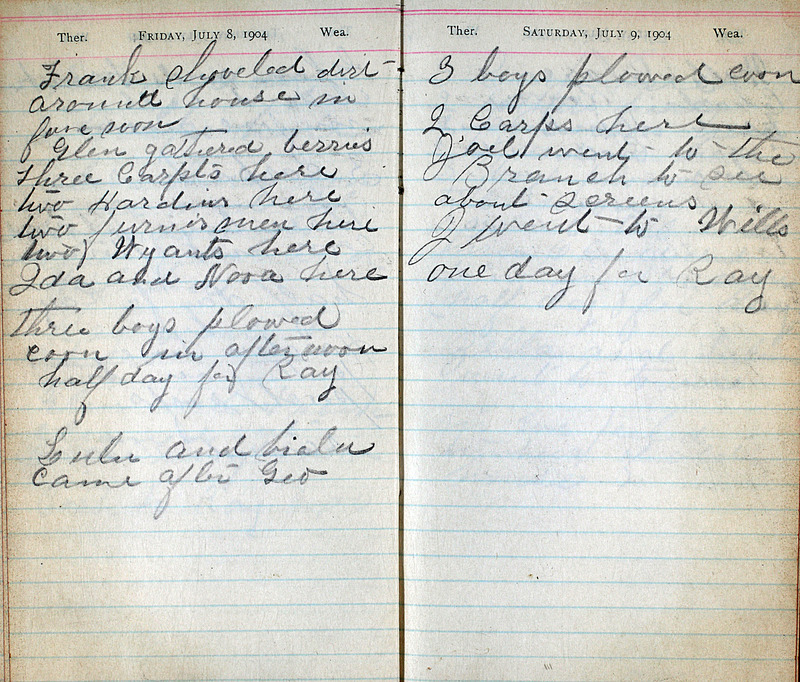 Ther. FRIDAY, JULY 8, 1904 Wea.
Frank shoveled dirt
around house in
fore noon
Glen gathered berries
three Carpts here
two Hardins here
two furnis men here
two Wyants here
Ida and Nora here
three boys plowed
corn in afternoon
half day for Ray
Lulu and
came after Geo
Ther. SATURDAY, JULY 9, 1904 Wea.
3 boys plowed corn
2 Carps here
Joel went to the
Branch to see
about screens
I went to Wills
one day for Ray